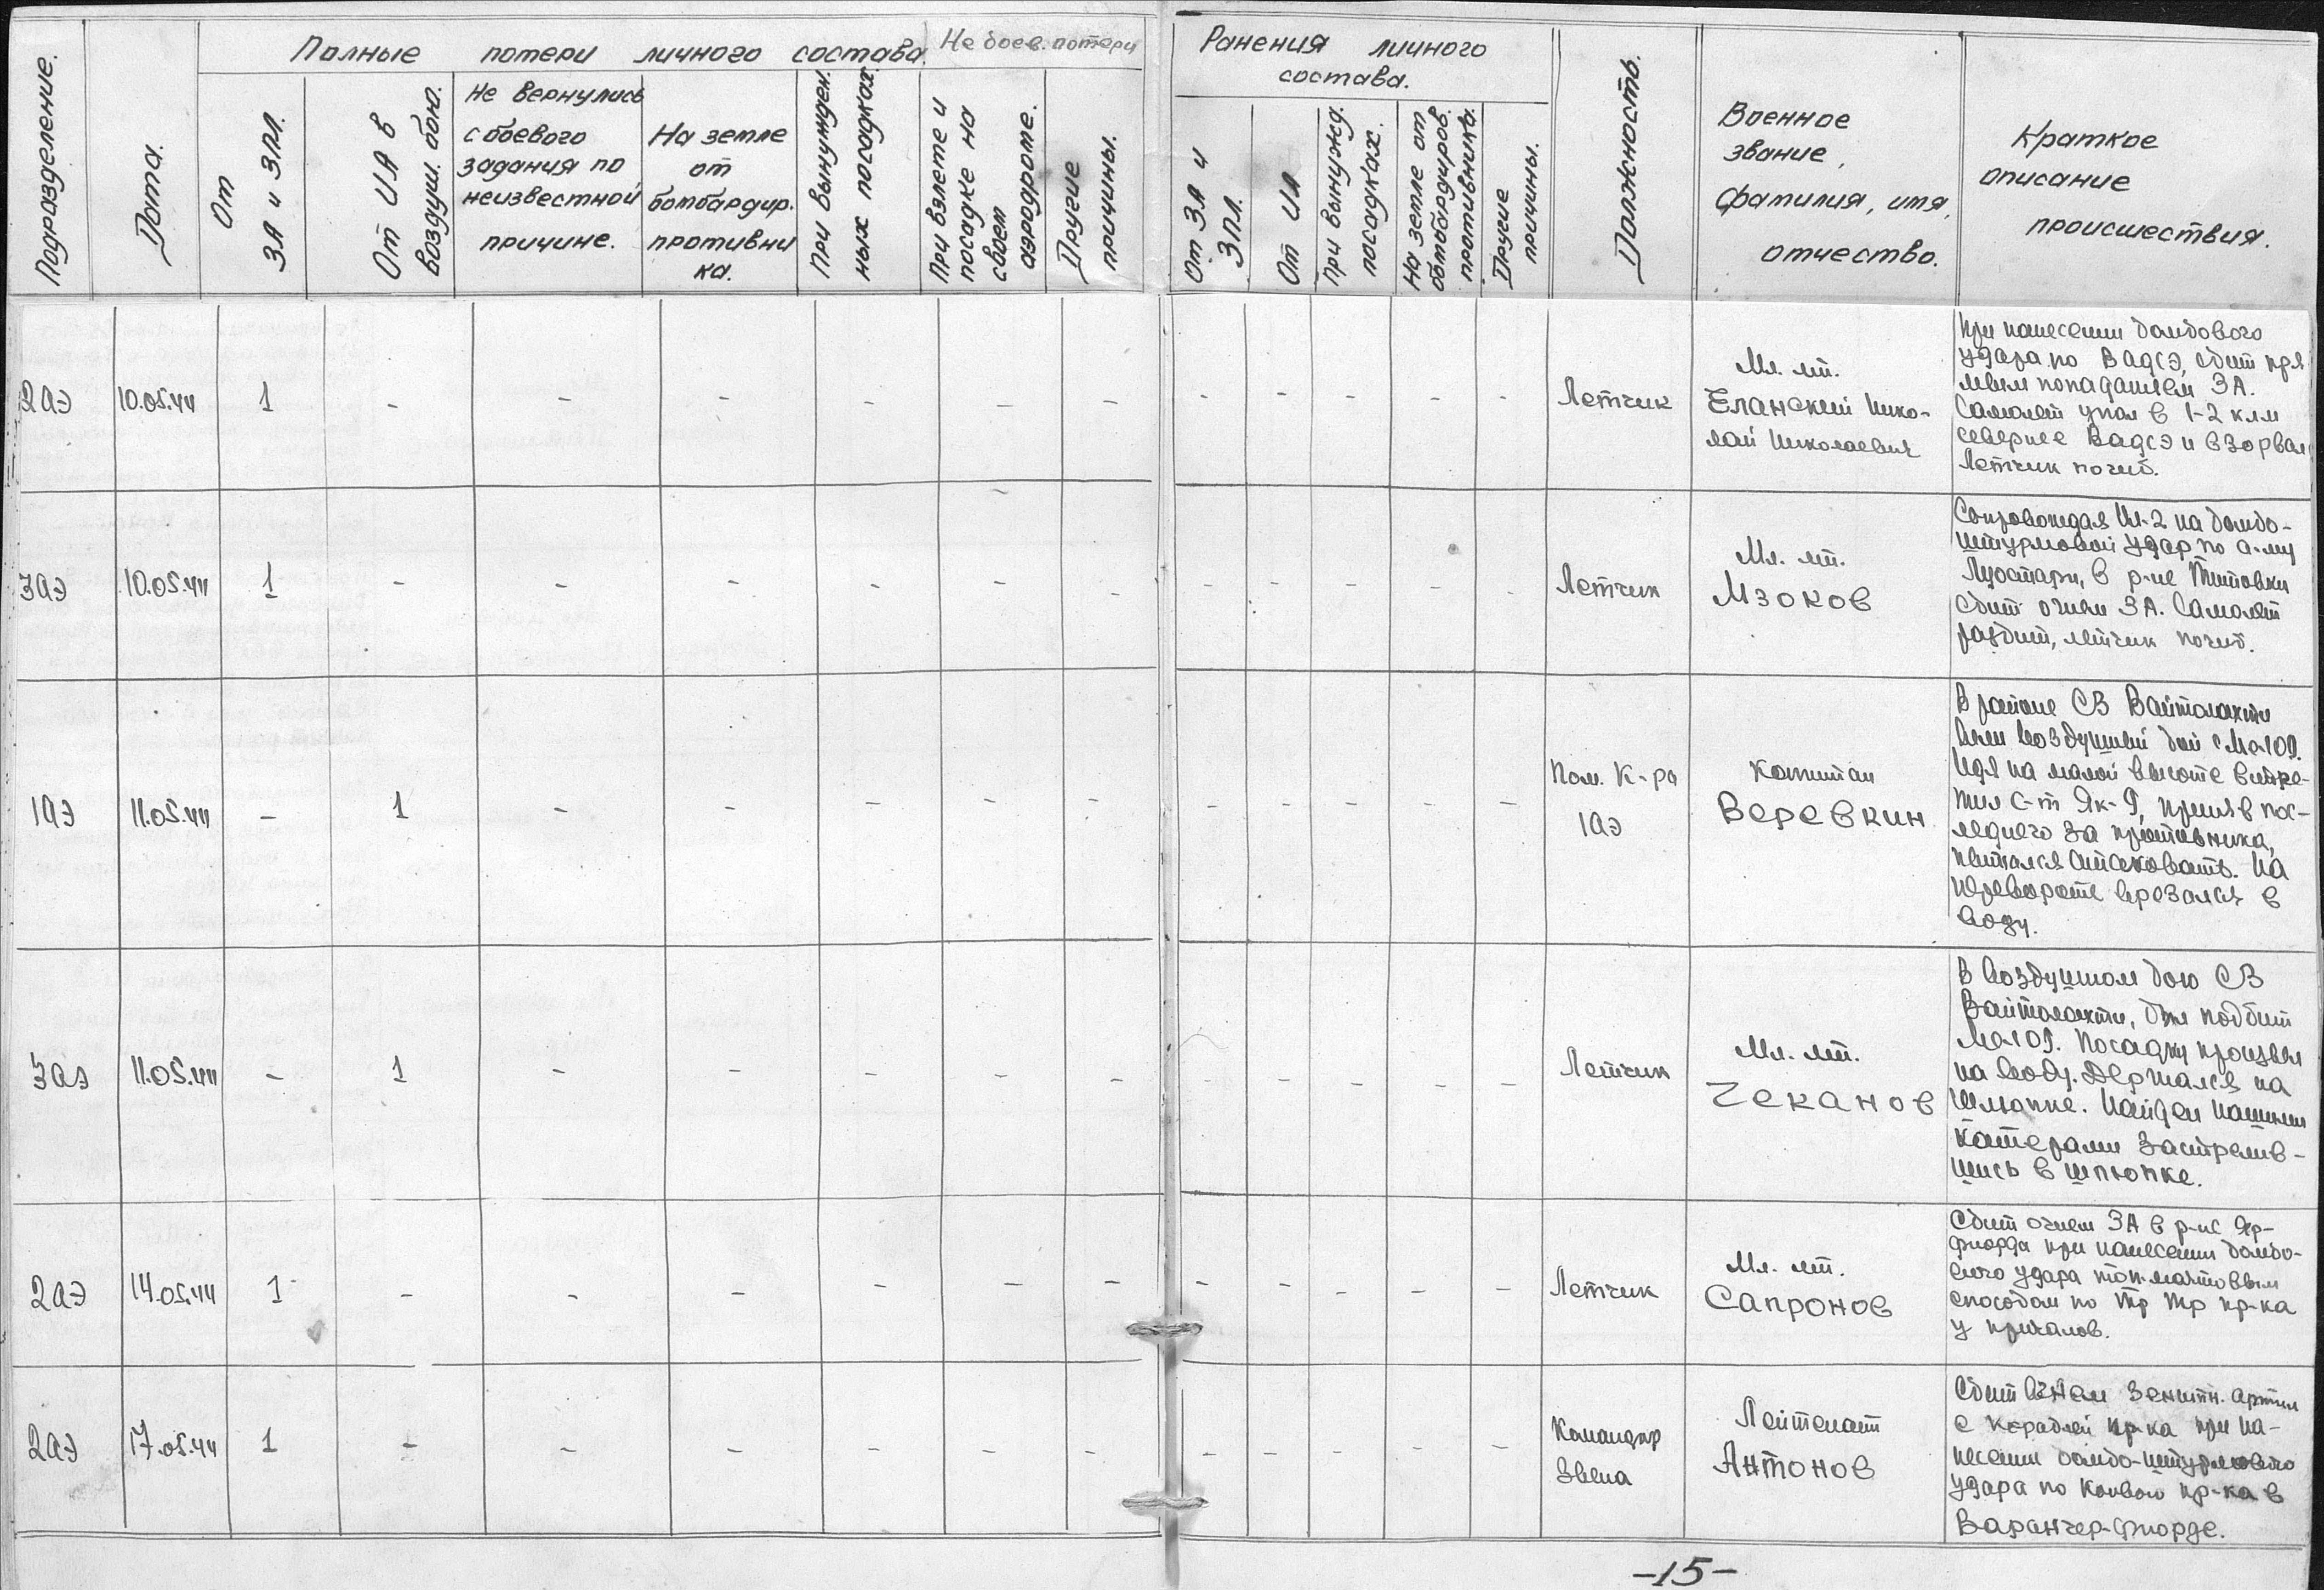 Подразделение.
Дата.
Полные потери личного состава.
Не боев. потери
От
ЗА и ЗПЛ.
От ИА в
воздуш. бою.
Не вернулись
с боевого
задания по
неизвестной
причине.
На земле
от
бомбардир.
противни
ка.
При вынужден.
ных посадках.
При взлете и
посадке на
своем
аэродроме.
Другие
причины.
Ранения личного
состава.
От ЗА и
ЗПЛ.
От ИА
При вынужд.
посадках.
На земле от
бомбардиров.
противника.
Другие
причины.
Должность.
Военное
звание,
фамилия, имя,
отчество.
Краткое
описание
происшествия.
2аэ 10.05.44 1 - - - - - - - - - - - Летчик
Мл. лт.
Еланский Нико-
лай Николаевич
При нанесении бомбового
удара по Вадсэ, сбит пря
мым попаданием ЗА.
Самолет упал в 1-2 клм
севернее Вадсэ и взорвал
Летчик погиб.
3аэ 10.05.44 1 - - - - - - - - - - - Летчик
Мл. лт.
Мзоков
Сопровождая Ил-2 на бомбо-
штурмовой удар по а-му
Луостари, в р-не Титовки
сбит огнем ЗА. Самолет
разбит, летчик погиб.
1аэ 11.05.44 - 1 - - - - - - - - - - Пом. К-ра
1аэ
Капитан
Веревкин
В районе СЗ Вайтолахти
вели воздушный бой с Ме-109.
Идя на малой высоте встре-
тил с-т Як-9, приняв пос-
леднего за противника,
пытался атаковать. На
перевороте врезался в
воду.
3аэ 11.05.44 - 1 - - - - - - - - - - Летчик
Мл. лт.
Чеканов
В воздушном бою СЗ
Вайтолахти, был подбит
Ме109. Посадку произвел
на воду. Держался на
шлюпке. Найден нашими
катерами застрелив-
шись в шлюпке.
2аэ 14.05.44 1 - - - - - - - - - - - Летчик
Мл. лт.
Сапронов
Сбит огнем ЗА в р-не Яр-
фиорда при нанесении бомбо-
вого удара топмачтовым
способом по Тр Тр пр-ка
у причалов.
2аэ 17.05.44 1 - - - - - - - - - - - Командир
Звена
Лейтенант
Антонов
Сбит огнем зенитн. артил
с кораблей пр-ка при на-
несении бомбо-штурмового
удара по конвою пр-ка в
Варангер-фиорде.
-15-